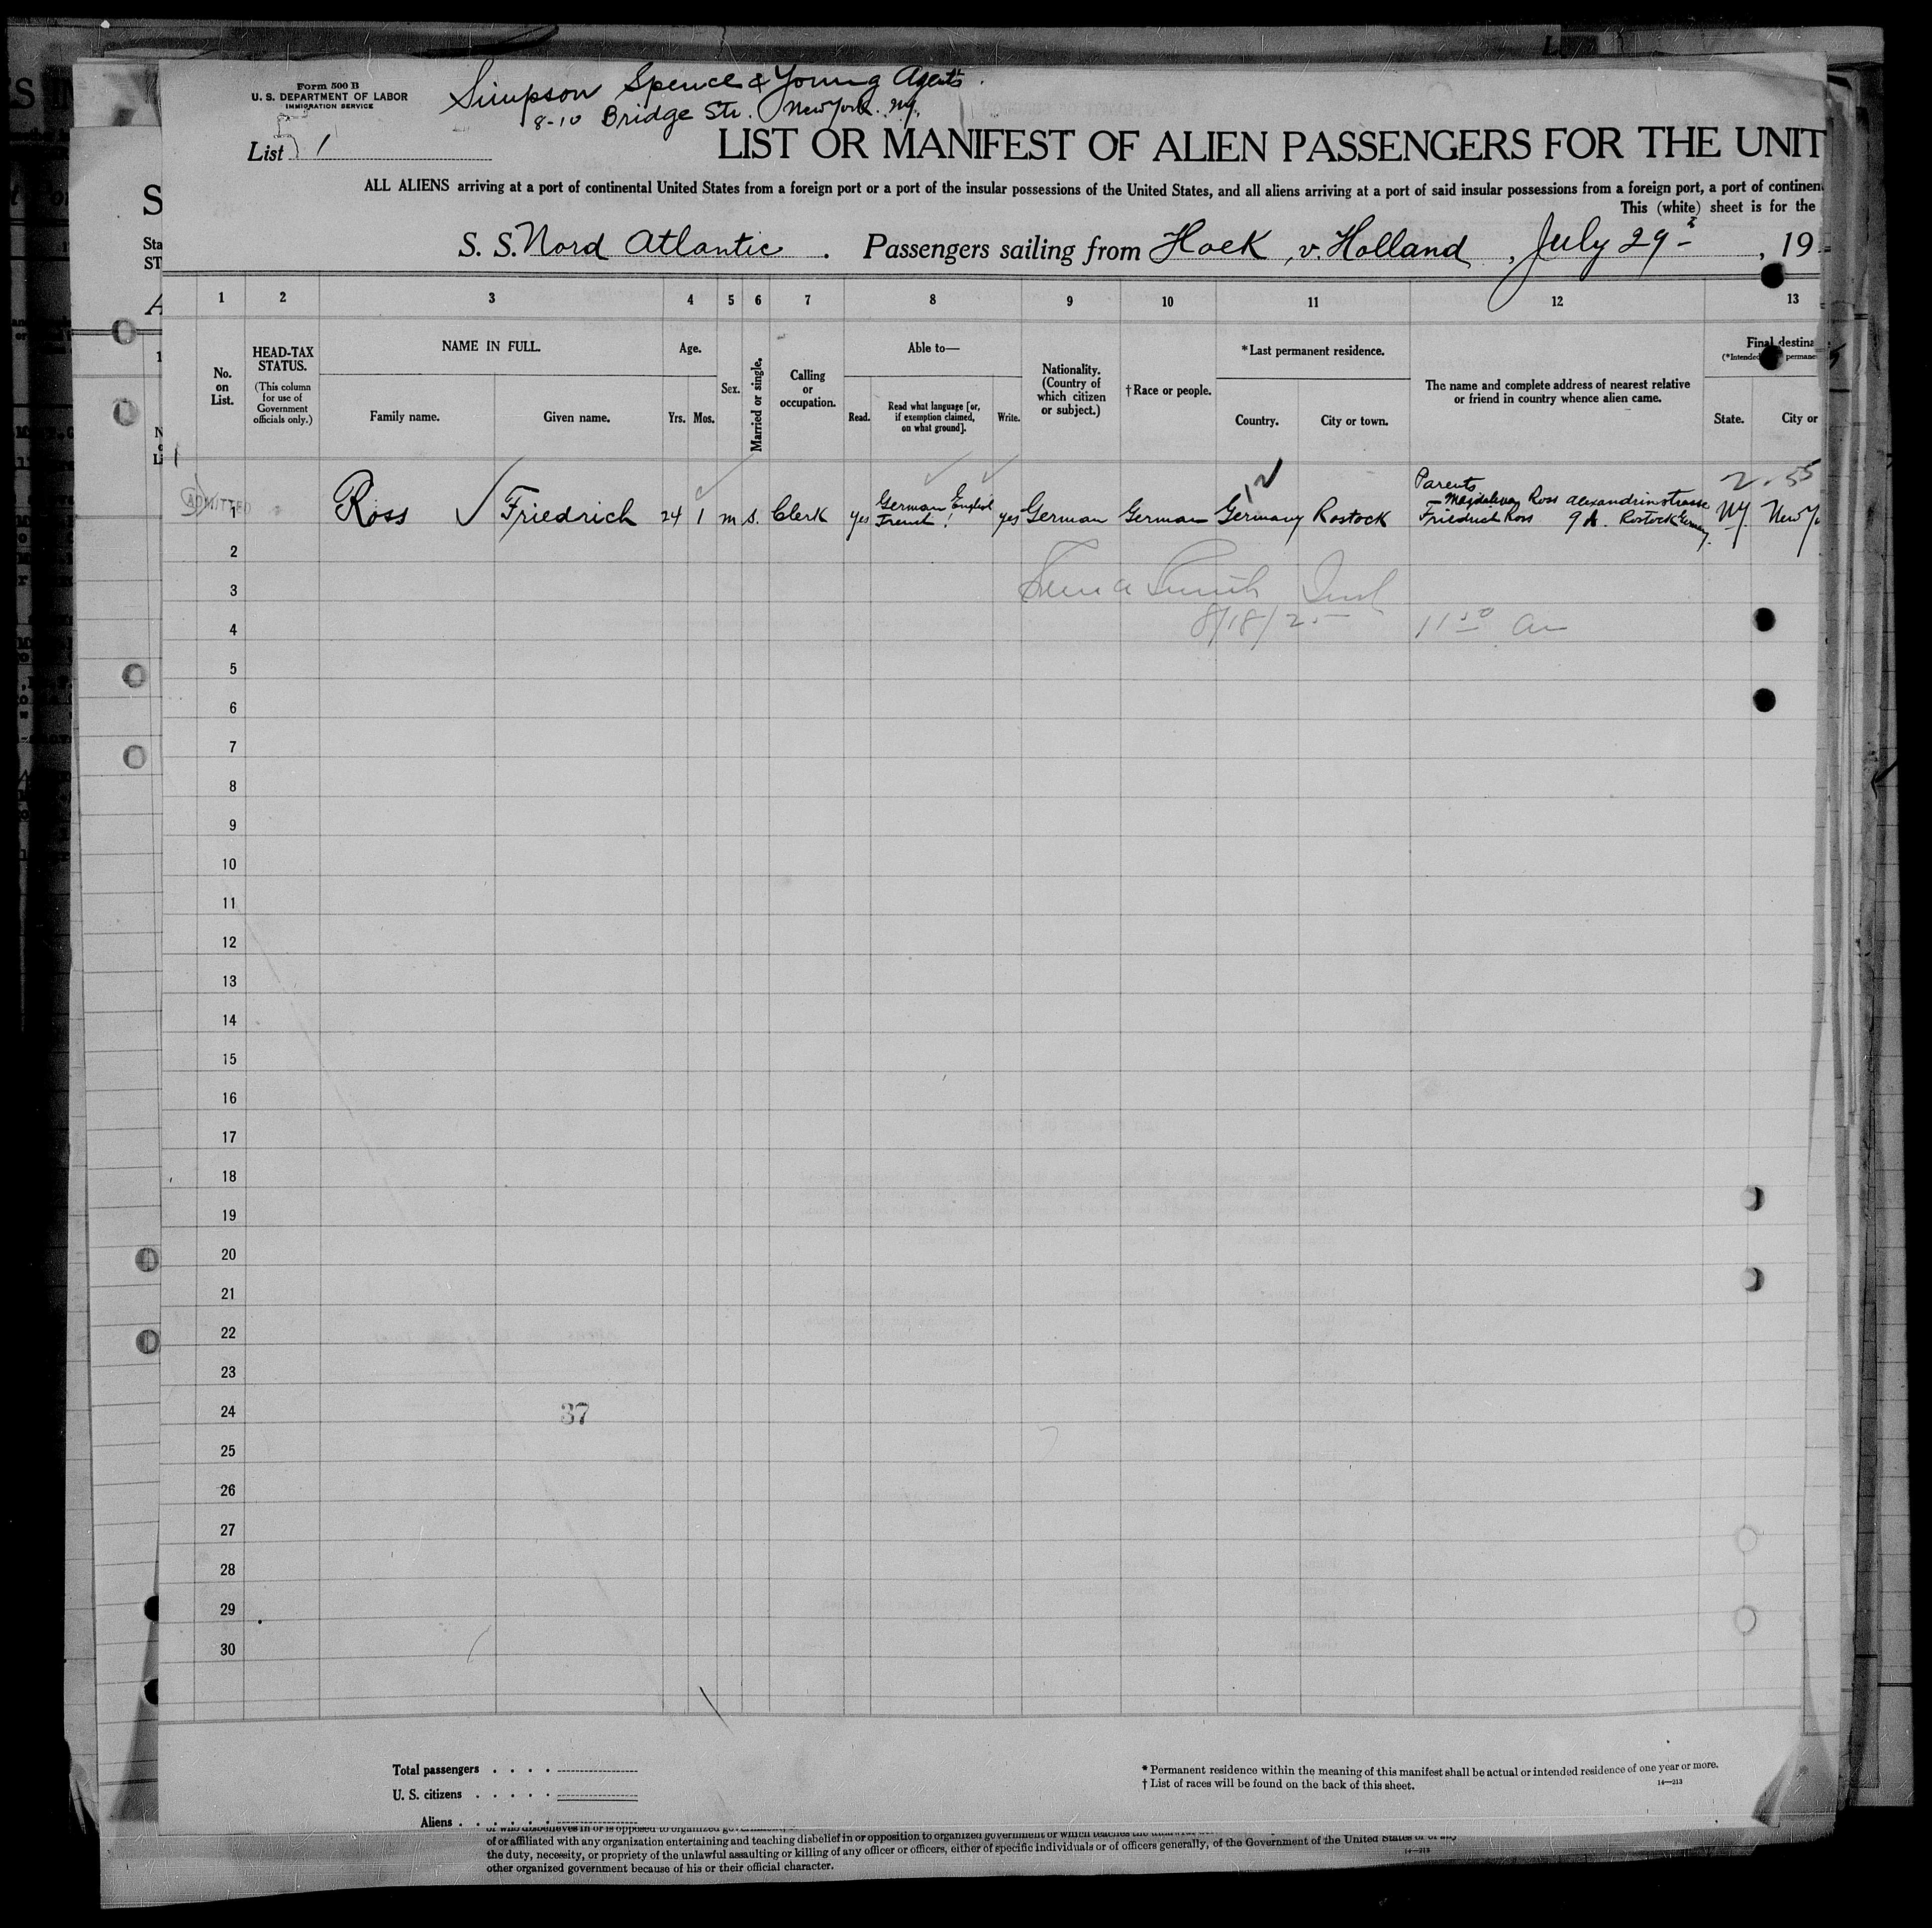 Form 500 B
U. S. DEPARTMENT OF LABOR
IMMIGRATION SERVICE
Simpson Spence & Young Agents.
8-10 Bridge Str. New York. N.Y.
List 1
LIST OR MANIFEST OF ALIEN PASSENGERS FOR THE UNIT
ALL ALIENS arriving at a port of continental United States from a foreign port or a port of the insular possessions of the United States, and all aliens arriving at a port of said insular possessions from a foreign port, a port of continen
This (white) sheet is for the
S. S. Nord Atlantic. Passengers sailing from Hoek v. Holland, July 29, 19
1 2 3 4 5 6 7 8 9 10 11 12 13
No. on List.
HEAD-TAX STATUS.
(This column for use of Government officials only.)
NAME IN FULL.
Family name. Given name.
Age.
Yrs. Mos.
Sex.
Married or single.
Calling or occupation.
Able to—
Read. Read what language [or, if exemption claimed, on what ground]. Write.
Nationality. (Country of which citizen or subject.)
†Race or people.
*Last permanent residence.
Country. City or town.
The name and complete address of nearest relative or friend in country whence alien came.
Final destina
(*Intended permane
State. City or
ADMITTED
2.55
1 Ross Friedrich 24 1 m s. Clerk yes German English French yes German German Germany Rostock Parents Magdalena Ross Alexandrinstrasse Friedrich Ross 9A. Rostock Germany. NY. New Yo
2
3
8/18/25 11 50 am
4
5
6
7
8
9
10
11
12
13
14
15
16
17
18
19
20
21
22
23
24
37
25
26
27
28
29
30
Total passengers . . . .
U. S. citizens . . . . .
Aliens . . . . . .
* Permanent residence within the meaning of this manifest shall be actual or intended residence of one year or more.
† List of races will be found on the back of this sheet.
14—213
of or affiliated with any organization entertaining and teaching disbelief in or opposition to organized government or which teaches the
the duty, necessity, or propriety of the unlawful assaulting or killing of any officer or officers, either of specific individuals or of officers generally, of the Government of the United States or of any
other organized government because of his or their official character.
14—213